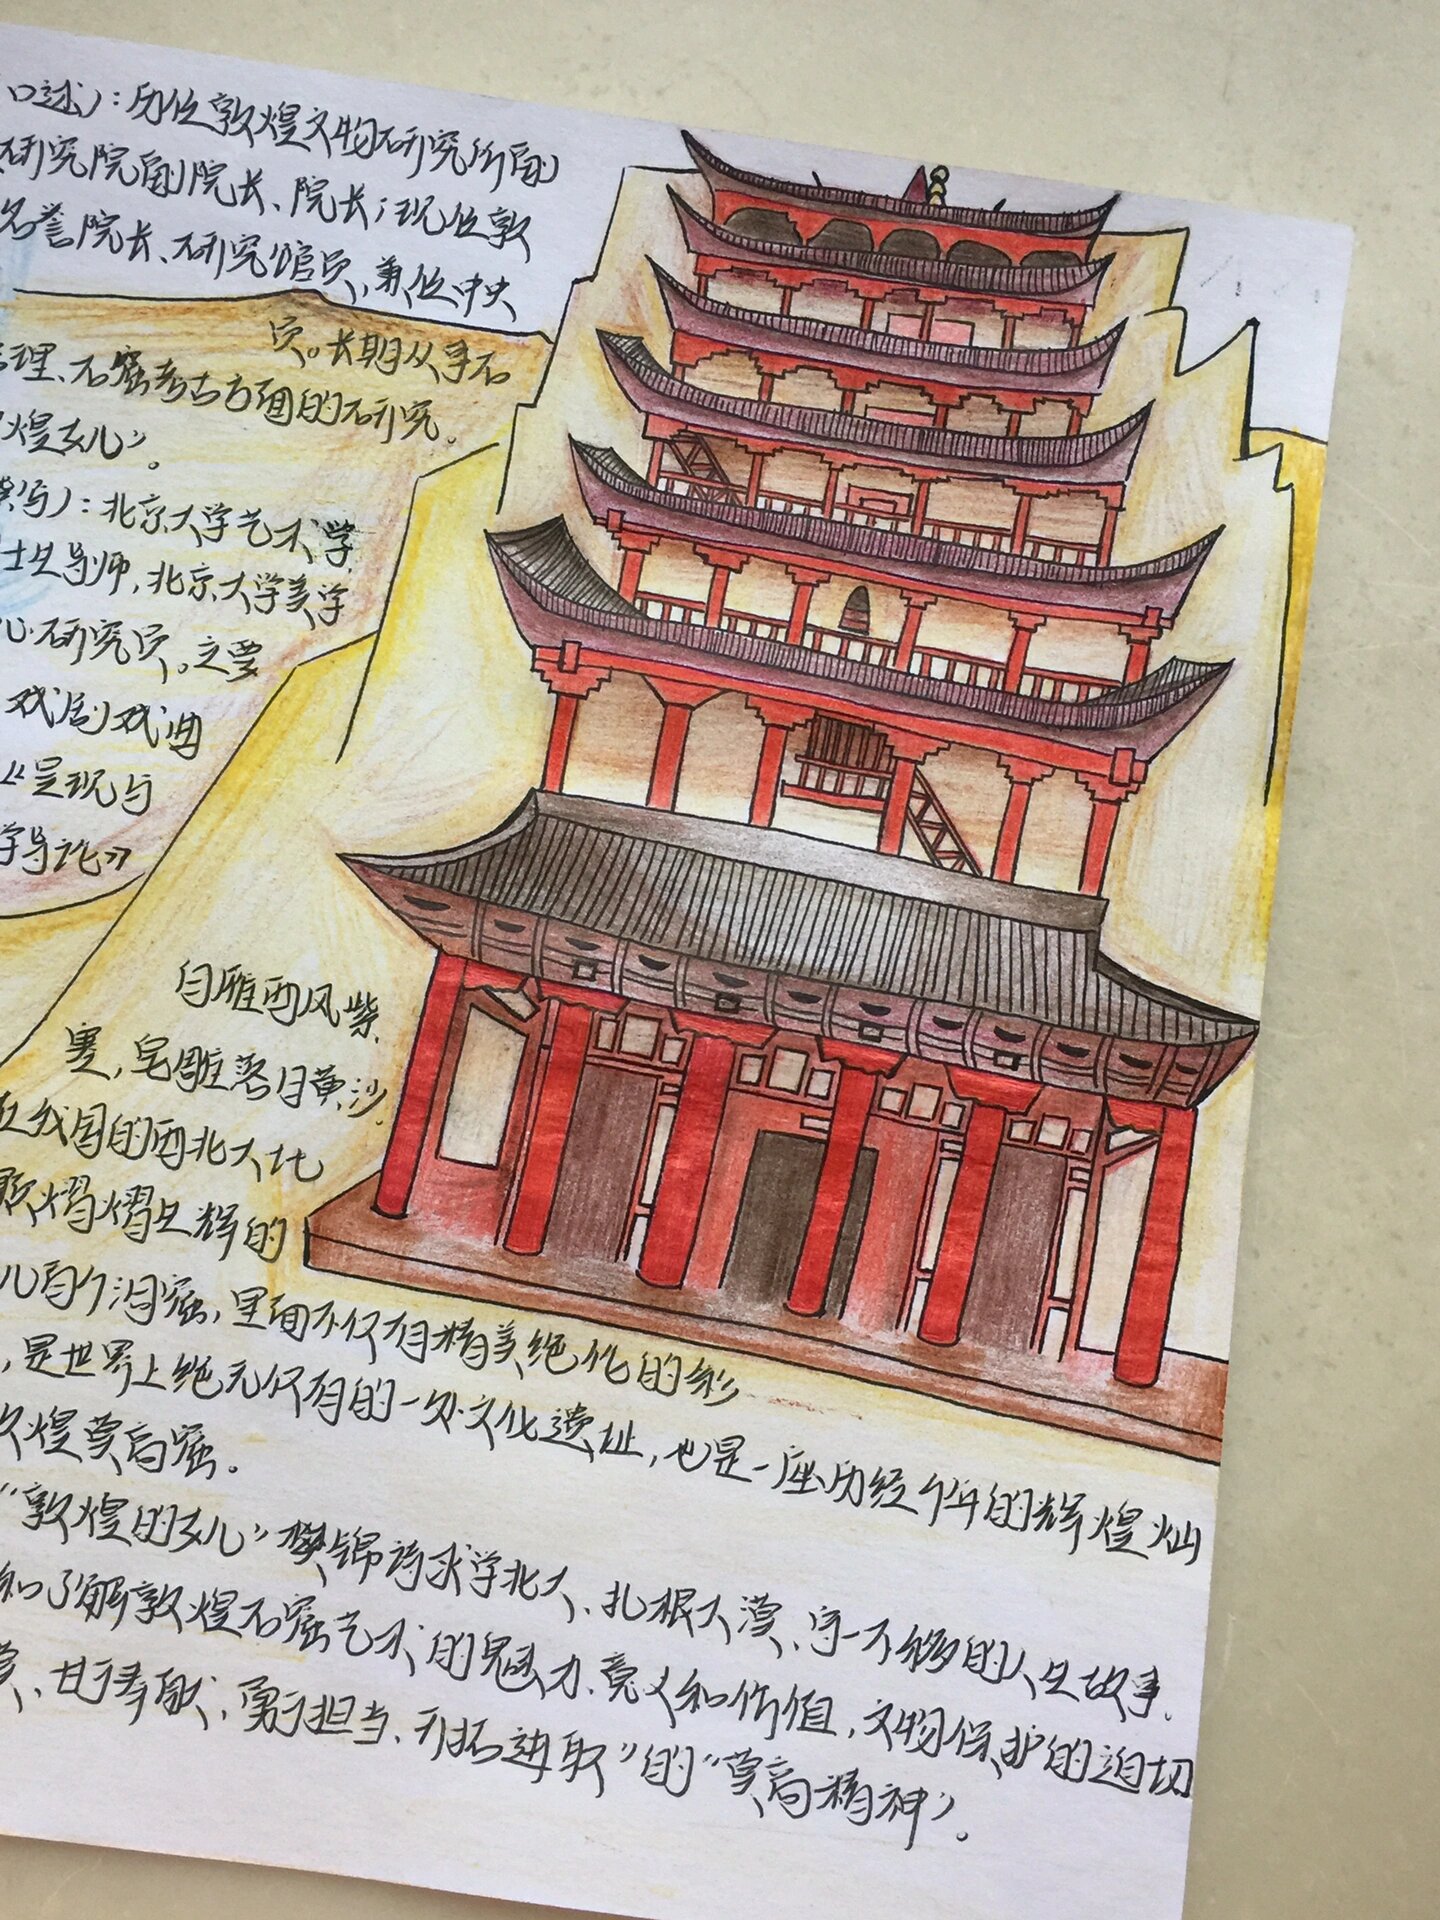 口述）：历任敦煌文物研究所副
研究院副院长、院长；现任敦
名誉院长、研究馆员，兼任中央
员。长期从事石
理、石窟考古方面的研究。
煌女儿”。
撰写）：北京大学艺术学
士生导师，北京大学美学
心研究员。主要
戏剧戏曲
《呈现与
学导论》
自雕西风紫
塞，宅雕落日黄沙
在我国的西北大地
颗熠熠生辉的
几百个洞窟，里面不仅有精美绝伦的彩
，是世界上绝无仅有的一处文化遗址，也是一座历经千年的辉煌灿
敦煌莫高窟。
“敦煌的女儿”樊锦诗求学北大、扎根大漠、守一不移的人生故事。
和了解敦煌石窟艺术的魅力、意义和价值，文物保护的迫切
莫、甘于奉献、勇于担当、开拓进取”的“莫高精神”。